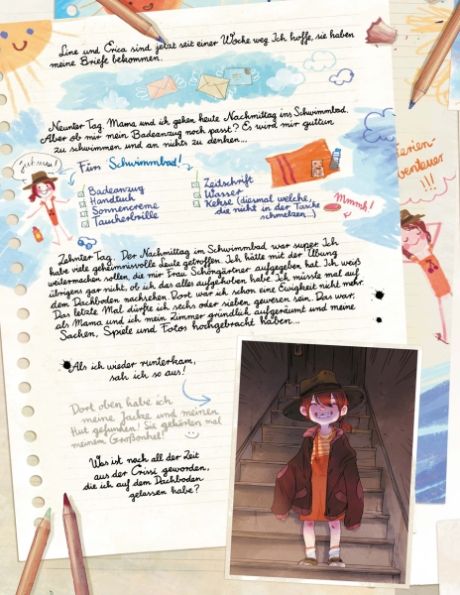 Line und Erica sind jetzt seit einer Woche weg. Ich hoffe, sie haben
meine Briefe bekommen.
Neunter Tag. Mama und ich gehen heute Nachmittag ins Schwimmbad.
Aber ob mir mein Badeanzug noch passt? Es wird mir guttun
zu schwimmen und an nichts zu denken...
Gut so!
Fürs Schwimmbad!
Badeanzug
Handtuch
Sonnencreme
Taucherbrille
Zeitschrift
Wasser
Kekse (diesmal welche,
die nicht in der Tasche
schmelzen...)
Mmmh!
Ferien-
abenteuer
!!!
Zehnter Tag. Der Nachmittag im Schwimmbad war super. Ich
habe viele geheimnisvolle Leute getroffen. Ich hätte mit der Übung
weitermachen sollen, die mir Frau Schöngärtner aufgegeben hat. Ich weiß
übrigens gar nicht, ob ich das alles aufgehoben habe. Ich müsste mal auf
dem Dachboden nachsehen. Dort war ich schon eine Ewigkeit nicht mehr.
Das letzte Mal dürfte ich sechs oder sieben gewesen sein. Das war,
als Mama und ich mein Zimmer gründlich aufgeräumt und meine
Sachen, Spiele und Fotos hochgebracht haben...
Als ich wieder runterkam,
sah ich so aus!
Dort oben habe ich
meine Jacke und meinen
Hut gefunden! Sie gehörten mal
meinem Großonkel!
Was ist nach all der Zeit
aus der Crissi geworden,
die ich auf dem Dachboden
gelassen habe?